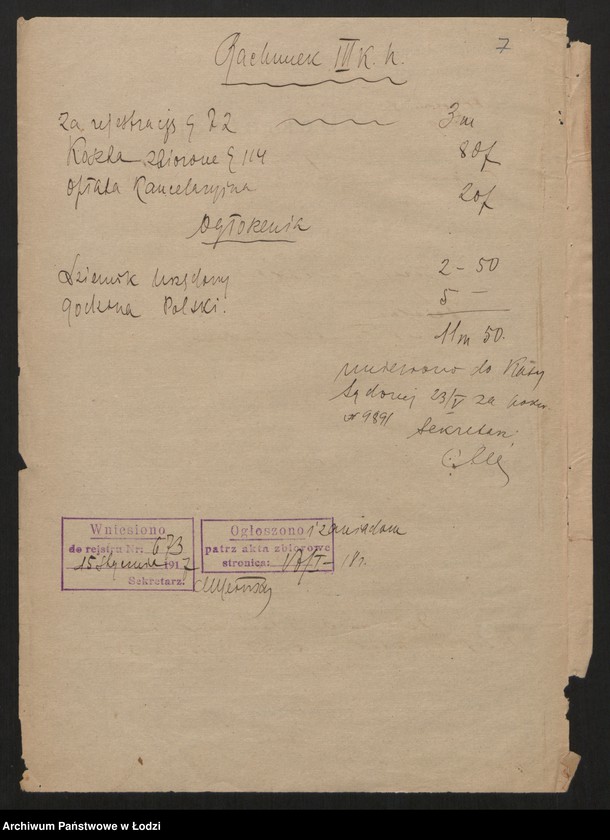 7
Rachunek III K. h.
Za rejestracją § 72 3 m
Koszta zbiorowe § 114 80 f
Opłata Kancelaryjna 20 f
Ogłoszenia
Dziennik Urzędowy 2 - 50
Godzina Polski. 5 -
11 m 50.
wniesiono do Kasy
Sądowej 23/V za
№ 9891
Sekretarz
Wniesiono
do rejstru Nr: 673
15 Stycznia 191
Sekretarz:
Ogłoszono i zawiadom
patrz akta zbiorowe
stronica:
Archiwum Państwowe w Łodzi